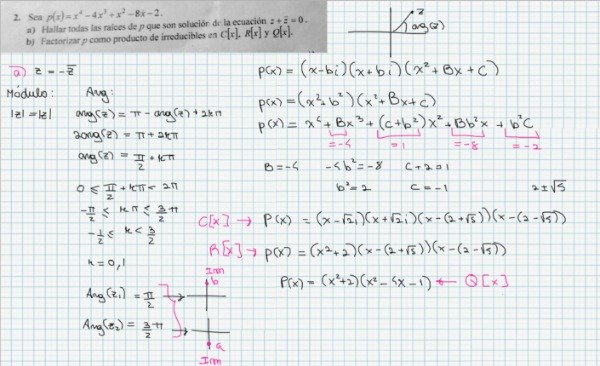 2. Sea p(x) = x⁴ - 4x³ + x² - 8x - 2.
a) Hallar todas las raíces de p que son solución de la ecuación z + z̄ = 0.
b) Factorizar p como producto de irreducibles en C[x], R[x] y Q[x].
a) z = -z̄
Módulo:
|z| = |z|
Ang:
ang(z) = π - ang(z) + 2kπ
2ang(z) = π + 2kπ
ang(z) = π/2 + kπ
0 ≤ π/2 + kπ < 2π
-π/2 ≤ kπ ≤ 3/2 π
-1/2 ≤ k < 3/2
k = 0,1
Ang(z₁) = π/2
Ang(z₂) = 3/2 π
Imm
b
a
Imm
z
ang(z)
p(x) = (x-bi)(x+bi)(x²+Bx+C)
p(x) = (x²+b²)(x²+Bx+C)
p(x) = x⁴ + Bx³ + (C+b²)x² + Bb²x + b²C
= -4 = 1 = -8 = -2
B = -4 -4b² = -8 C+2 = 1
b² = 2 C = -1 2±√5
C[x] → P(x) = (x-√2i)(x+√2i)(x-(2+√5))(x-(2-√5))
R[x] → p(x) = (x²+2)(x-(2+√5))(x-(2-√5))
P(x) = (x²+2)(x²-4x-1) ← Q[x]